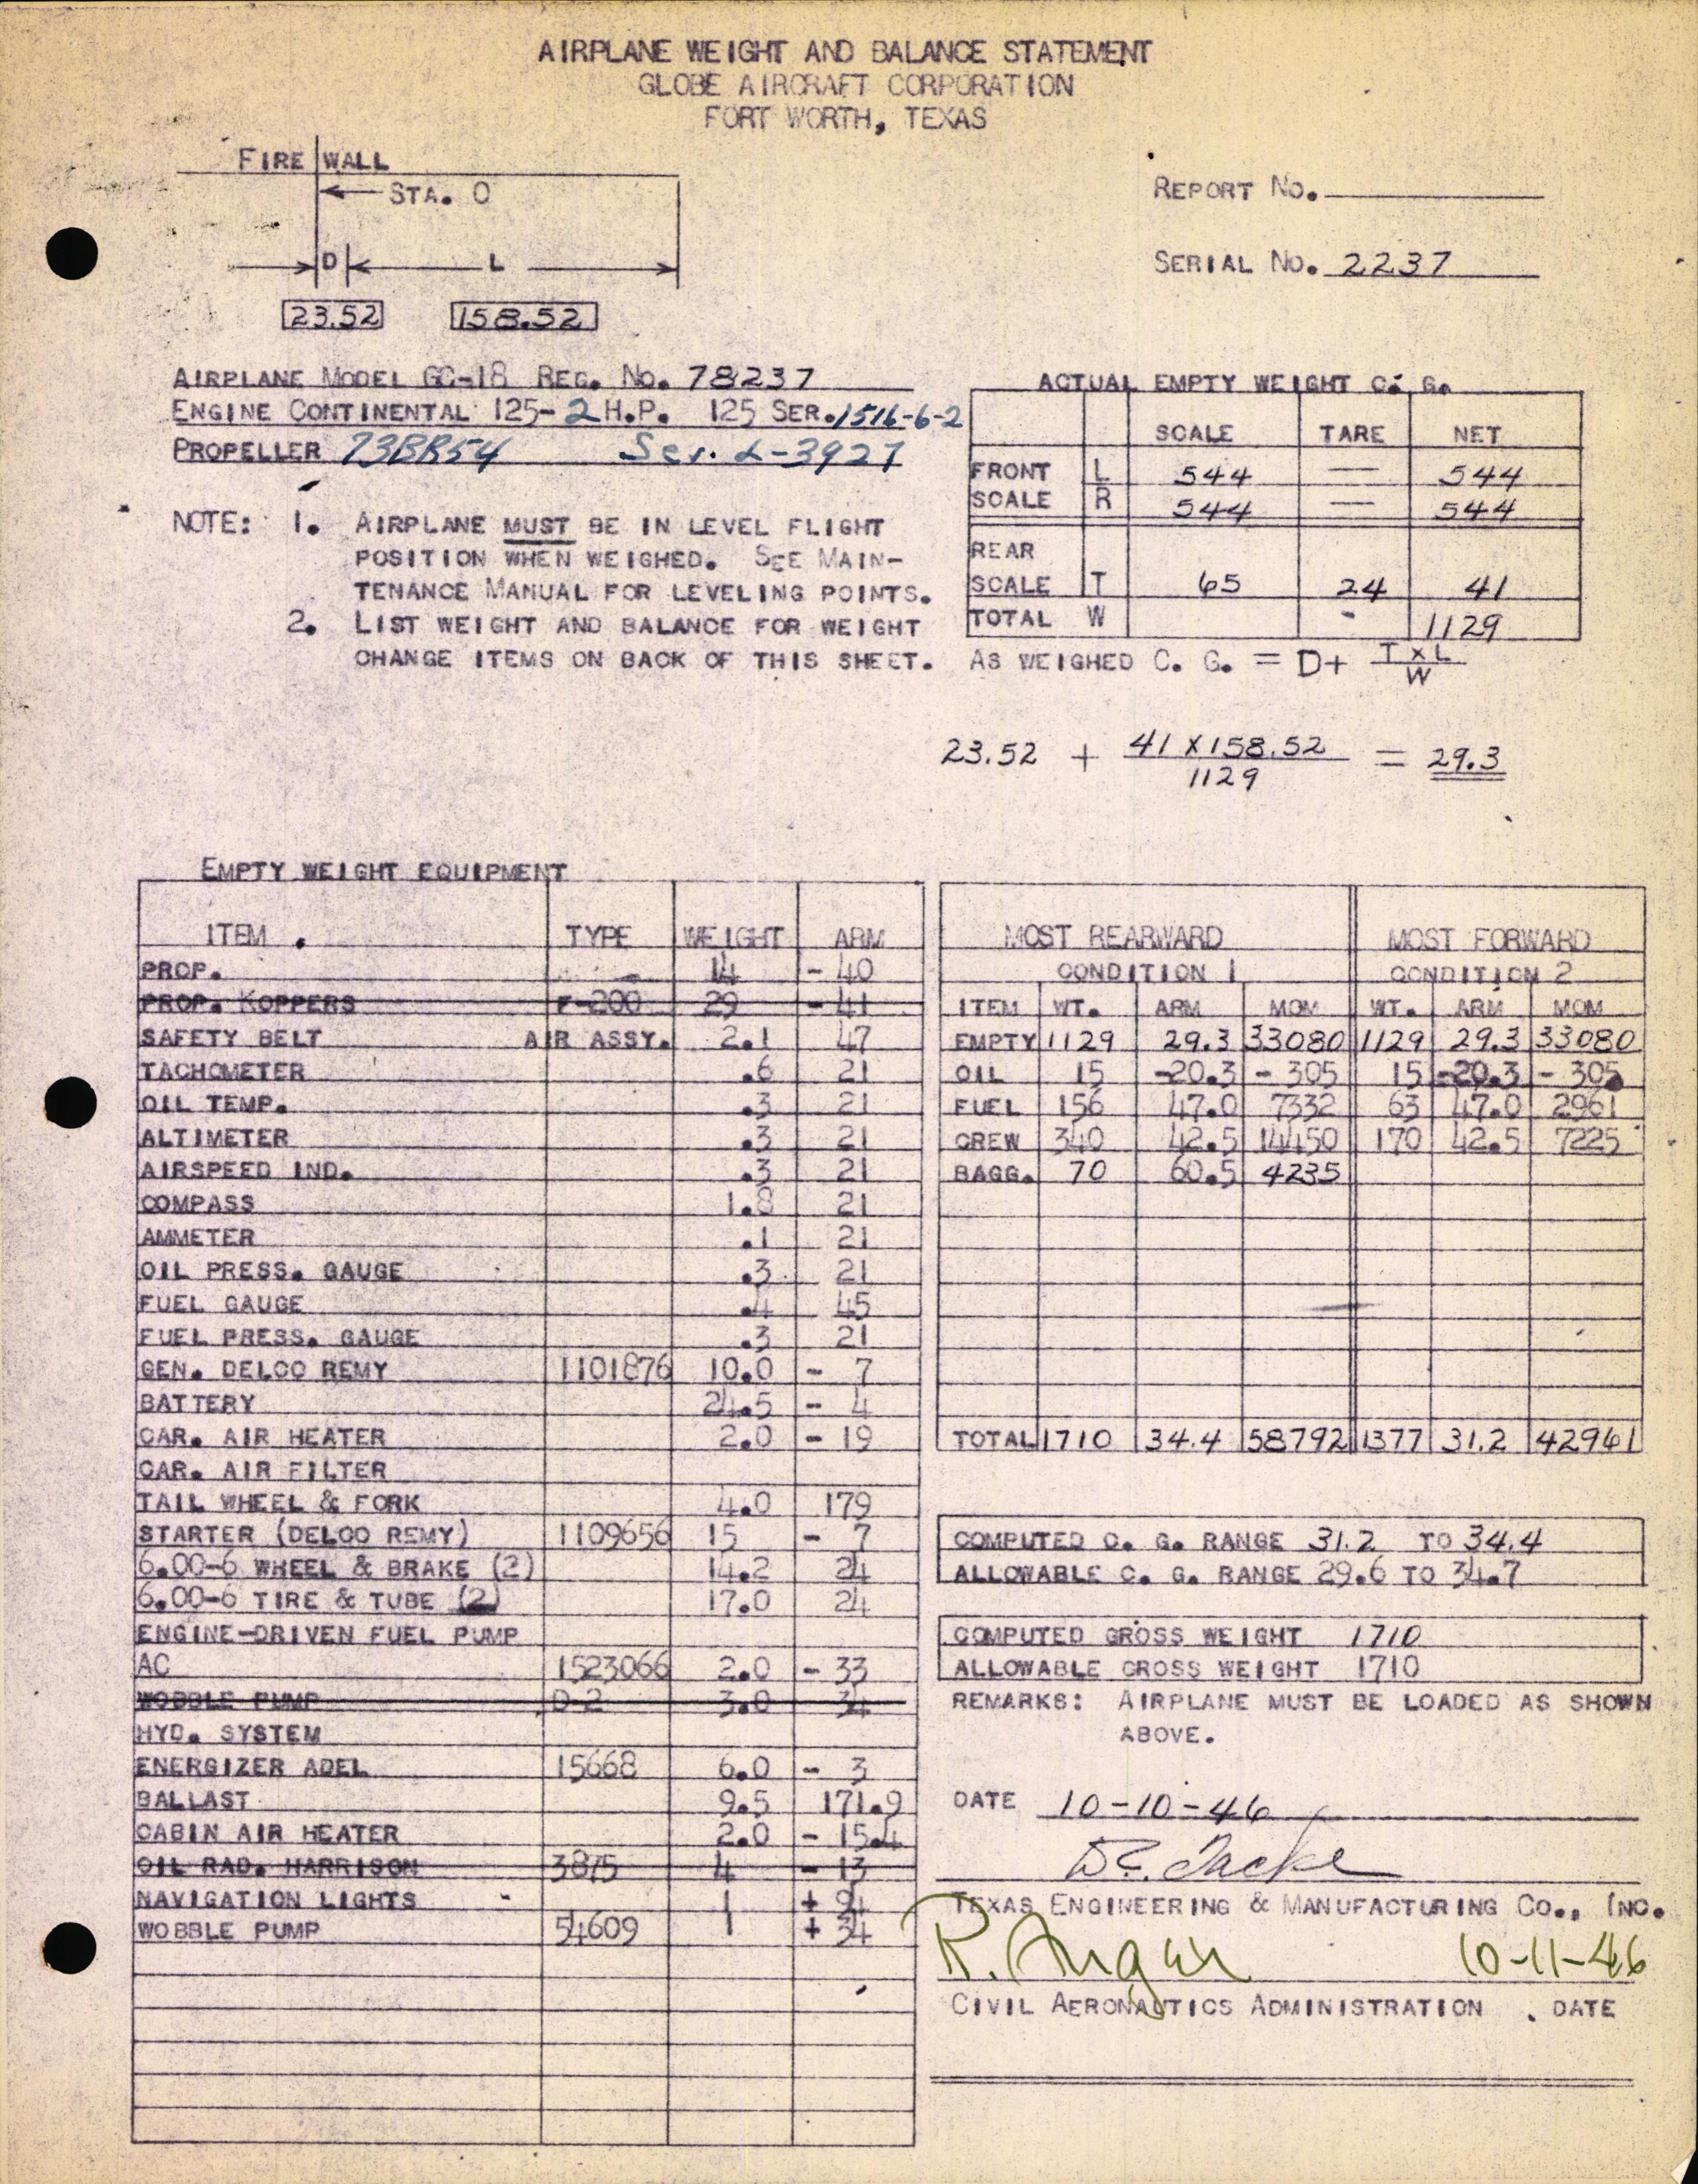 AIRPLANE WEIGHT AND BALANCE STATEMENT
GLOBE AIRCRAFT CORPORATION
FORT WORTH, TEXAS
FIRE WALL
STA. 0
D L
23.52 158.52
REPORT NO.
SERIAL NO. 2237
AIRPLANE MODEL GC-1B REG. NO. 78237
ENGINE CONTINENTAL 125-2 H.P. 125 SER. 1516-6-2
PROPELLER 73BR54 Ser. L-3927
NOTE: 1. AIRPLANE MUST BE IN LEVEL FLIGHT
POSITION WHEN WEIGHED. SEE MAIN-
TENANCE MANUAL FOR LEVELING POINTS.
2. LIST WEIGHT AND BALANCE FOR WEIGHT
CHANGE ITEMS ON BACK OF THIS SHEET.
ACTUAL EMPTY WEIGHT C. G.
SCALE TARE NET
FRONT L 544 — 544
SCALE R 544 — 544
REAR
SCALE T 65 24 41
TOTAL W - 1129
AS WEIGHED C. G. = D+ T x L
W
23.52 + 41 X 158.52 = 29.3
1129
EMPTY WEIGHT EQUIPMENT
ITEM . TYPE WEIGHT ARM
PROP. 14 - 40
PROP. KOPPERS F-200 29 - 41
SAFETY BELT AIR ASSY. 2.1 47
TACHOMETER .6 21
OIL TEMP. .3 21
ALTIMETER .3 21
AIRSPEED IND. .3 21
COMPASS 1.8 21
AMMETER .1 21
OIL PRESS. GAUGE .3 21
FUEL GAUGE .4 45
FUEL PRESS. GAUGE .3 21
GEN. DELCO REMY 1101876 10.0 - 7
BATTERY 24.5 - 4
CAR. AIR HEATER 2.0 - 19
CAR. AIR FILTER
TAIL WHEEL & FORK 4.0 179
STARTER (DELCO REMY) 1109656 15 - 7
6.00-6 WHEEL & BRAKE (2) 14.2 24
6.00-6 TIRE & TUBE (2) 17.0 24
ENGINE-DRIVEN FUEL PUMP
AC 1523066 2.0 - 33
WOBBLE PUMP D-2 3.0 34
HYD. SYSTEM
ENERGIZER ADEL 15668 6.0 - 3
BALLAST 9.5 171.9
CABIN AIR HEATER 2.0 - 15.4
OIL RAD. HARRISON 3875 4 - 13
NAVIGATION LIGHTS 1 + 94
WOBBLE PUMP 54609 1 + 34
MOST REARWARD MOST FORWARD
CONDITION 1 CONDITION 2
ITEM WT. ARM MOM WT. ARM MOM
EMPTY 1129 29.3 33080 1129 29.3 33080
OIL 15 -20.3 - 305 15 -20.3 - 305
FUEL 156 47.0 7332 63 47.0 2961
CREW 340 42.5 14450 170 42.5 7225
BAGG. 70 60.5 4235
TOTAL 1710 34.4 58792 1377 31.2 42961
COMPUTED C. G. RANGE 31.2 TO 34.4
ALLOWABLE C. G. RANGE 29.6 TO 34.7
COMPUTED GROSS WEIGHT 1710
ALLOWABLE GROSS WEIGHT 1710
REMARKS: AIRPLANE MUST BE LOADED AS SHOWN
ABOVE.
DATE 10-10-46
TEXAS ENGINEERING & MANUFACTURING CO., INC.
10-11-46
CIVIL AERONAUTICS ADMINISTRATION . DATE